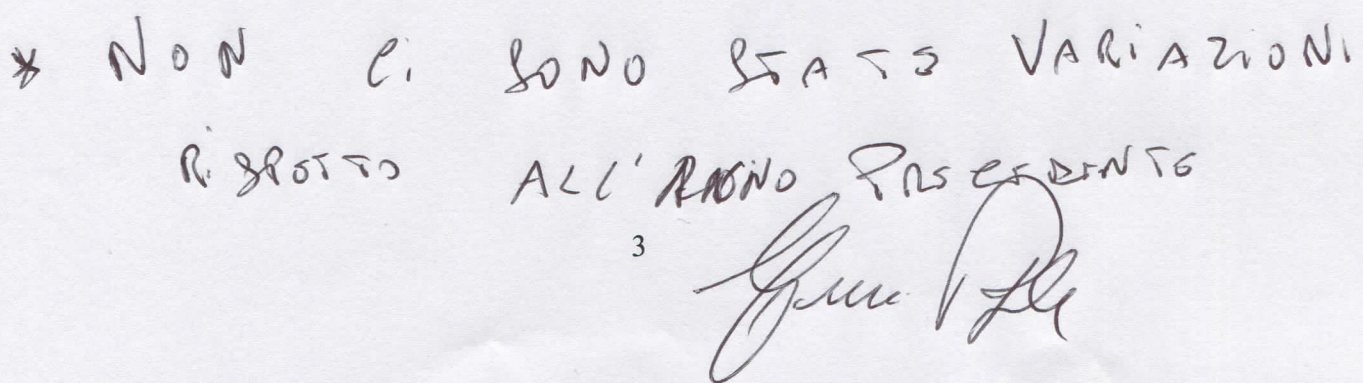 * NON CI SONO STATE VARIAZIONI
RISPETTO ALL'ANNO PRECEDENTE
3